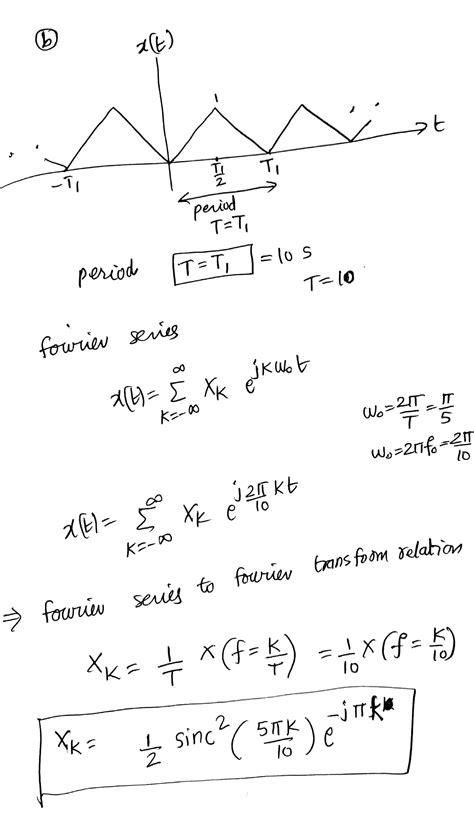 (b)
x(t)
1
t
-T₁ T₁/2 T₁
period
T=T₁
period T=T₁ =10 s
T=10
fourier series
x(t)= Σ_{K=-∞}^{∞} X_K e^{jKω₀t}
ω₀=2π/T=π/5
ω₀=2πf₀=2π/10
x(t)= Σ_{K=-∞}^{∞} X_K e^{j2π/10 Kt}
⇒ fourier series to fourier transform relation
X_K= 1/T X(f=K/T) =1/10 X(f=K/10)
X_K= 1/2 sinc²(5πK/10) e^{-jπk}